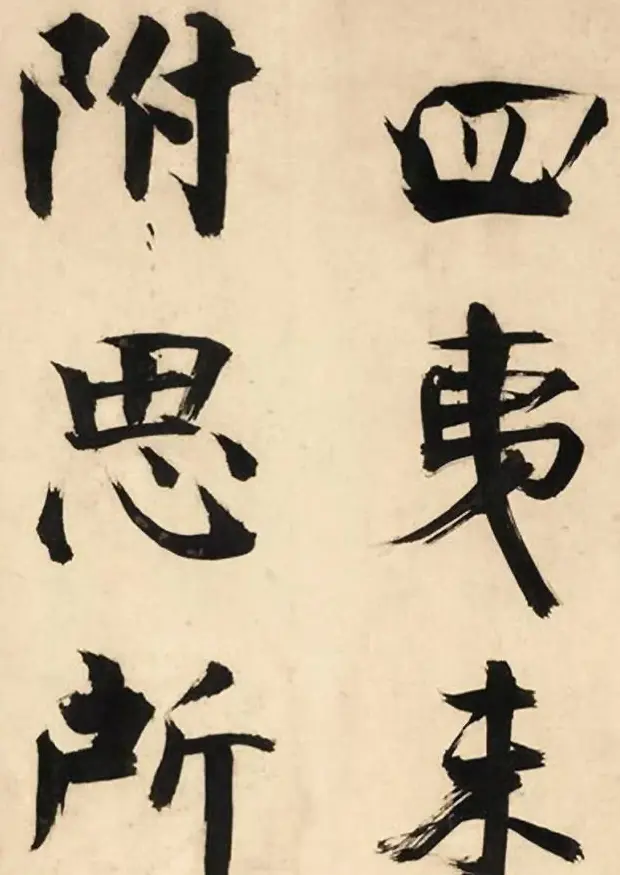 四夷来
附思所